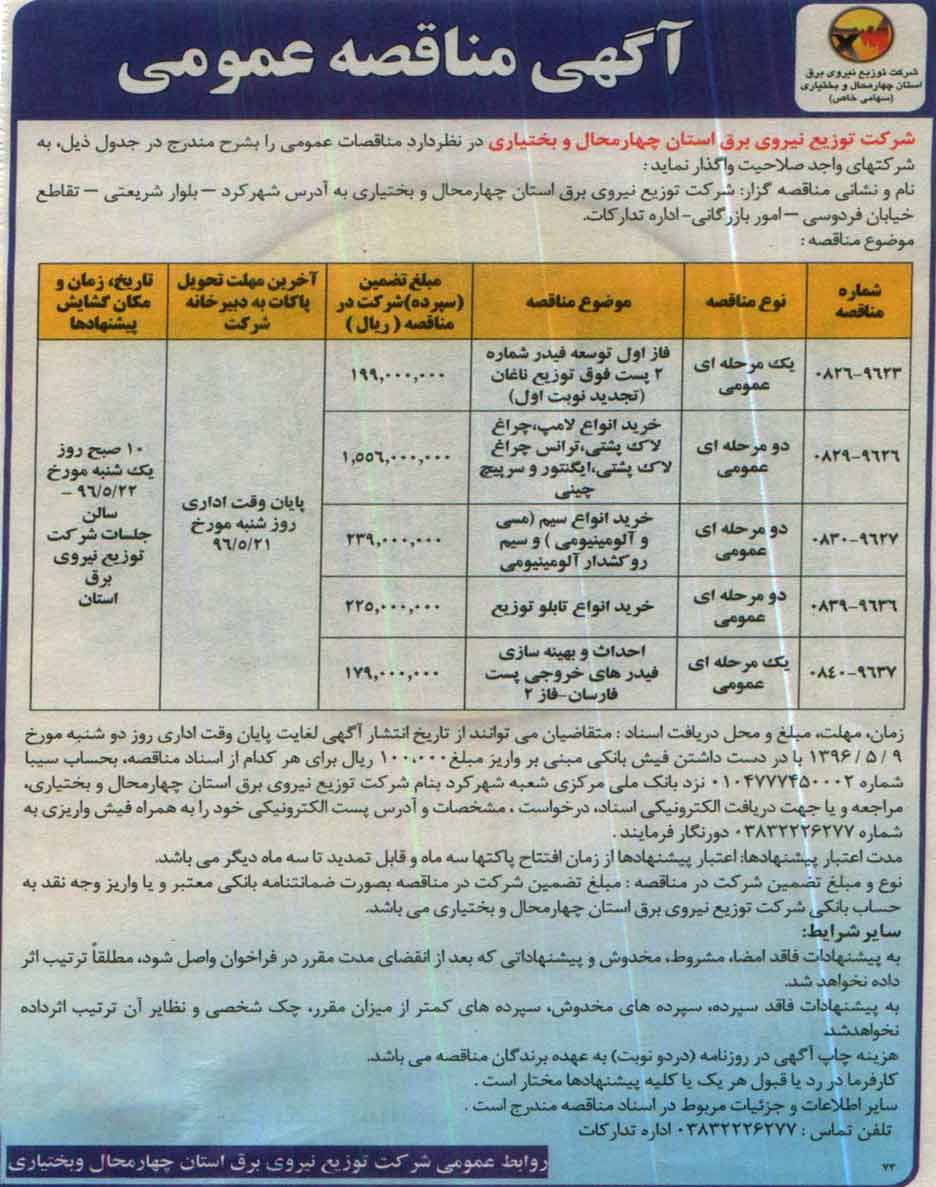 آگهی مناقصه عمومی
شرکت توزیع نیروی برق
استان چهارمحال و بختیاری
(سهامی خاص)
شرکت توزیع نیروی برق استان چهارمحال و بختیاری در نظردارد مناقصات عمومی را بشرح مندرج در جدول ذیل، به
شرکتهای واجد صلاحیت واگذار نماید :
نام و نشانی مناقصه گزار: شرکت توزیع نیروی برق استان چهارمحال و بختیاری به آدرس شهرکرد – بلوار شریعتی – تقاطع
خیابان فردوسی – امور بازرگانی- اداره تدارکات.
موضوع مناقصه :
شماره مناقصه
نوع مناقصه
موضوع مناقصه
مبلغ تضمین
(سپرده)شرکت در
مناقصه ( ریال )
آخرین مهلت تحویل
پاکات به دبیرخانه
شرکت
تاریخ، زمان و
مکان گشایش
پیشنهادها
۰۸۲۶-۹۶۲۳
یک مرحله ای
عمومی
فاز اول توسعه فیدر شماره
۲ پست فوق توزیع ناغان
(تجدید نوبت اول)
۱۹۹,۰۰۰,۰۰۰
۰۸۲۹-۹۶۲۶
دو مرحله ای
عمومی
خرید انواع لامپ،چراغ
لاک پشتی،ترانس چراغ
لاک پشتی،ایگنتور و سرپیچ
چینی
۱,۵۵۶,۰۰۰,۰۰۰
۰۸۳۰-۹۶۲۷
دو مرحله ای
عمومی
خرید انواع سیم (مسی
و آلومینیومی ) و سیم
روکشدار آلومینیومی
۲۳۹,۰۰۰,۰۰۰
۰۸۳۹-۹۶۳۶
دو مرحله ای
عمومی
خرید انواع تابلو توزیع
۲۲۵,۰۰۰,۰۰۰
۰۸۴۰-۹۶۳۷
یک مرحله ای
عمومی
احداث و بهینه سازی
فیدر های خروجی پست
فارسان-فاز ۲
۱۷۹,۰۰۰,۰۰۰
پایان وقت اداری
روز شنبه مورخ
۹۶/۵/۲۱
۱۰ صبح روز
یک شنبه مورخ
۹۶/۵/۲۲ –
سالن
جلسات شرکت
توزیع نیروی
برق
استان
زمان، مهلت، مبلغ و محل دریافت اسناد : متقاضیان می توانند از تاریخ انتشار آگهی لغایت پایان وقت اداری روز دو شنبه مورخ
۹ / ۵ / ۱۳۹۶ با در دست داشتن فیش بانکی مبنی بر واریز مبلغ ۱۰۰,۰۰۰ ریال برای هر کدام از اسناد مناقصه، بحساب سیبا
شماره ۰۱۰۴۷۷۷۴۵۰۰۰۲ نزد بانک ملی مرکزی شعبه شهرکرد بنام شرکت توزیع نیروی برق استان چهارمحال و بختیاری،
مراجعه و یا جهت دریافت الکترونیکی اسناد، درخواست ، مشخصات و آدرس پست الکترونیکی خود را به همراه فیش واریزی به
شماره ۰۳۸۳۲۲۲۶۲۷۷ دورنگار فرمایند .
مدت اعتبار پیشنهادها: اعتبار پیشنهادها از زمان افتتاح پاکتها سه ماه و قابل تمدید تا سه ماه دیگر می باشد.
نوع و مبلغ تضمین شرکت در مناقصه : مبلغ تضمین شرکت در مناقصه بصورت ضمانتنامه بانکی معتبر و یا واریز وجه نقد به
حساب بانکی شرکت توزیع نیروی برق استان چهارمحال و بختیاری می باشد.
سایر شرایط:
به پیشنهادات فاقد امضا، مشروط، مخدوش و پیشنهاداتی که بعد از انقضای مدت مقرر در فراخوان واصل شود، مطلقاً ترتیب اثر
داده نخواهد شد.
به پیشنهادات فاقد سپرده، سپرده های مخدوش، سپرده های کمتر از میزان مقرر، چک شخصی و نظایر آن ترتیب اثرداده
نخواهدشد.
هزینه چاپ آگهی در روزنامه (در دو نوبت) به عهده برندگان مناقصه می باشد.
کارفرما در رد یا قبول هر یک یا کلیه پیشنهادها مختار است .
سایر اطلاعات و جزئیات مربوط در اسناد مناقصه مندرج است .
تلفن تماس : ۰۳۸۳۲۲۲۶۲۷۷ اداره تدارکات
روابط عمومی شرکت توزیع نیروی برق استان چهارمحال وبختیاری
۷۳